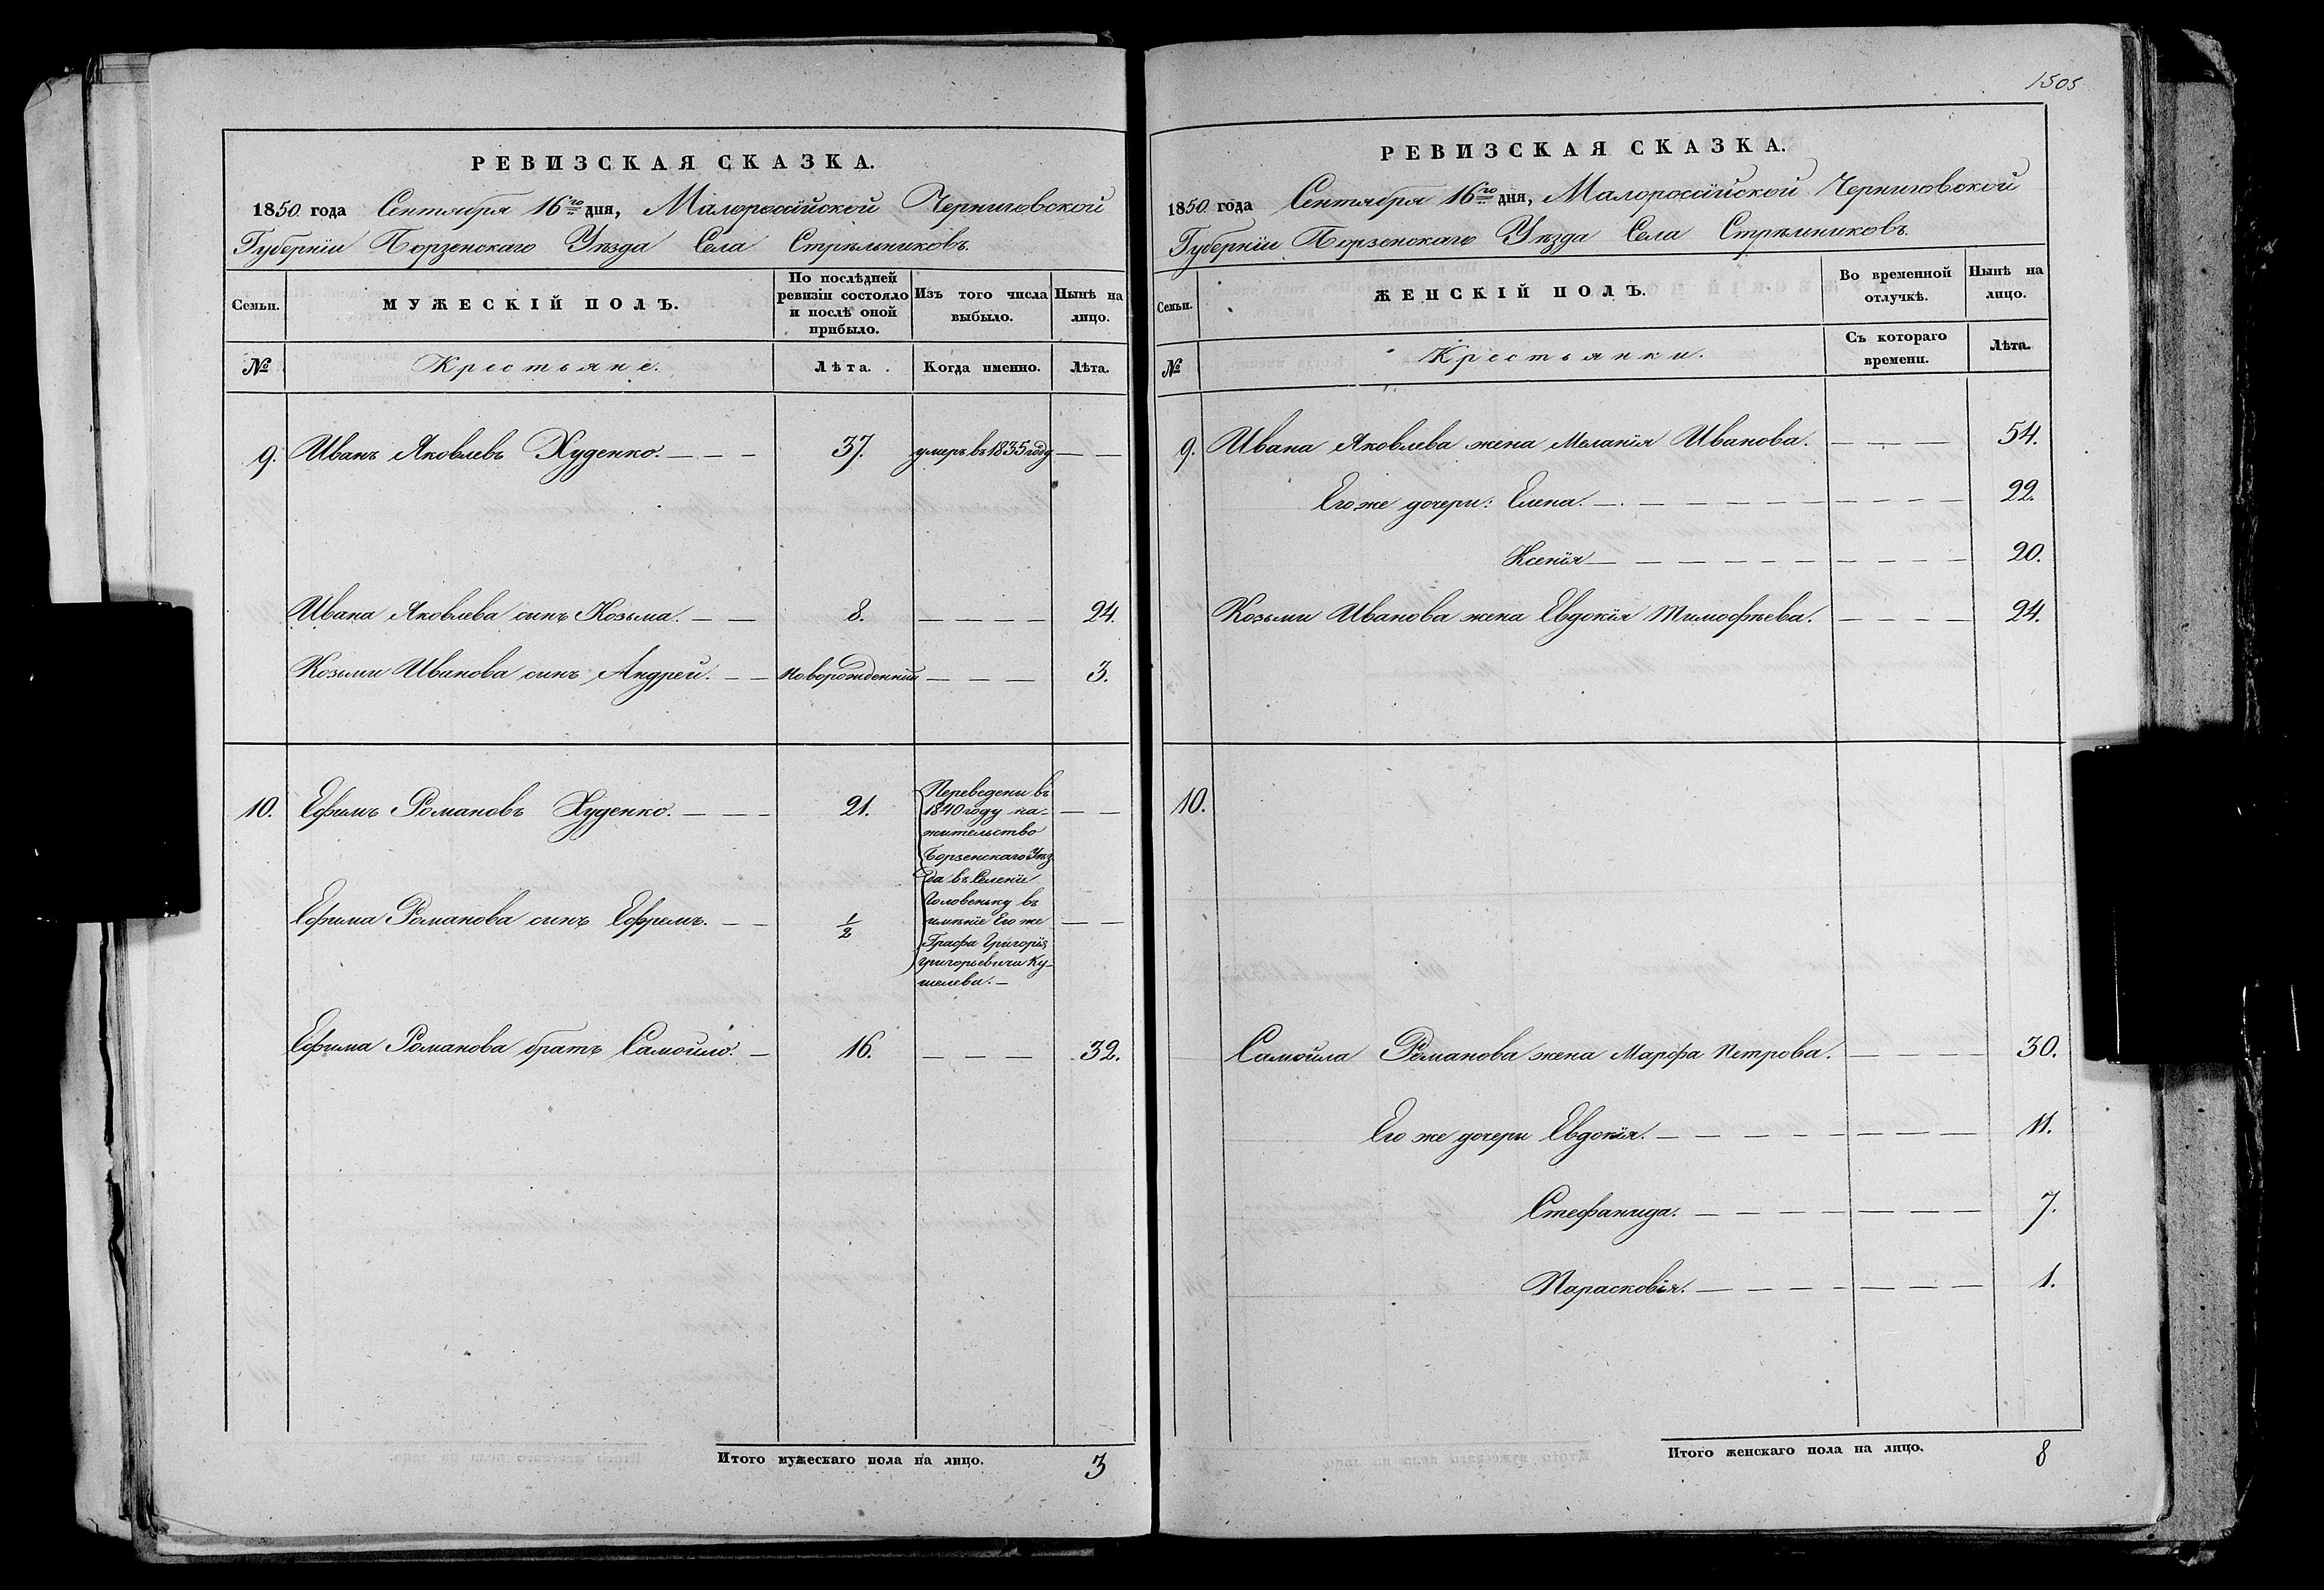 1505
РЕВИЗСКАЯ СКАЗКА.
1850 года Сентября 16го дня, Малоросс̈ійской Черниговской
Губерніи Борзенскаго Уѣзда Села Стрѣльниковъ.
Семьи.
МУЖЕСКІЙ ПОЛЪ.
По послѣдней
ревизіи состояло
и послѣ оной
прибыло.
Изъ того числа
выбыло.
Нынѣ на
лицо.
№
Крестьяне.
Лѣта.
Когда именно.
Лѣта.
9. Иванъ Яковлевъ Худенко. — — — 37. умеръ въ 1835 году — —
Ивана Яковлева сынъ Козьма. — — 8. — — — — 24.
Козьми Иванова сынъ Андрей. — — Новорожденный — — — 3.
10. Ефимъ Романовъ Худенко. — — — 21. — —
Переведены въ
1840 году на-
жительство
Борзенскаго Уѣз-
да въ Селеніи
Головеньку въ
имѣніе Его же
Графа Григорія
Григорьевича Ку-
шелева. —
Ефима Романова сынъ Ефремъ. — — 1/2 — —
Ефима Романова братъ Самойло. — 16. — — — 32.
Итого мужескаго пола на лицо. 3
РЕВИЗСКАЯ СКАЗКА.
1850 года Сентября 16го дня, Малороссійской Черниговской
Губерніи Борзенскаго Уѣзда Села Стрѣльниковъ.
Семьи.
ЖЕНСКІЙ ПОЛЪ.
Во временной
отлучкѣ.
Нынѣ на
лицо.
№
Крестьянки.
Съ котораго
времени.
Лѣта.
9. Ивана Яковлева жена Меланія Иванова. — — — 54.
Его же дочери: Елена. — — — — — — — — — 22.
Ксенія — — — — — — — — — 20.
Козьми Иванова жена Евдокія Тимофѣева. — — — — 24.
10.
Самойла Романова жена Марфа Петрова. — — — — 30.
Его же дочери Евдокія. — — — — — — — — 11.
Стефанида. — — — — — — — 7.
Парасковія. — — — — — — — 1.
Итого женскаго пола на лицо. 8